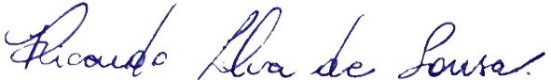 Ricardo Alva de Sousa.